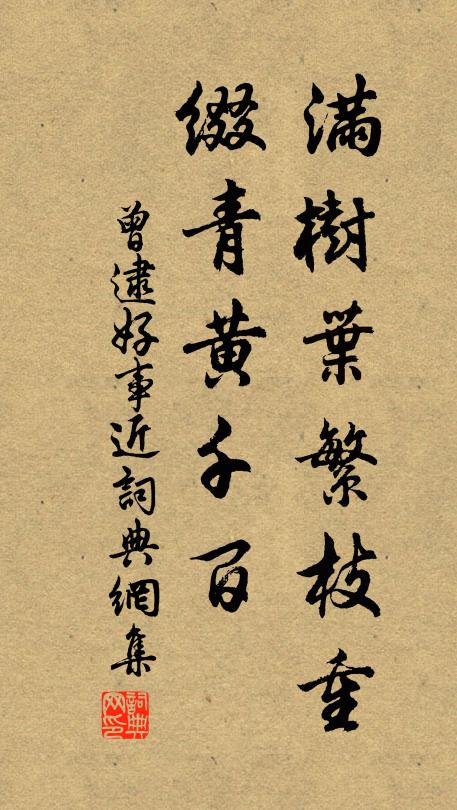 滿樹葉繁枝重
綴青黃千百
曾逮好事近詞典網集
詞典网印